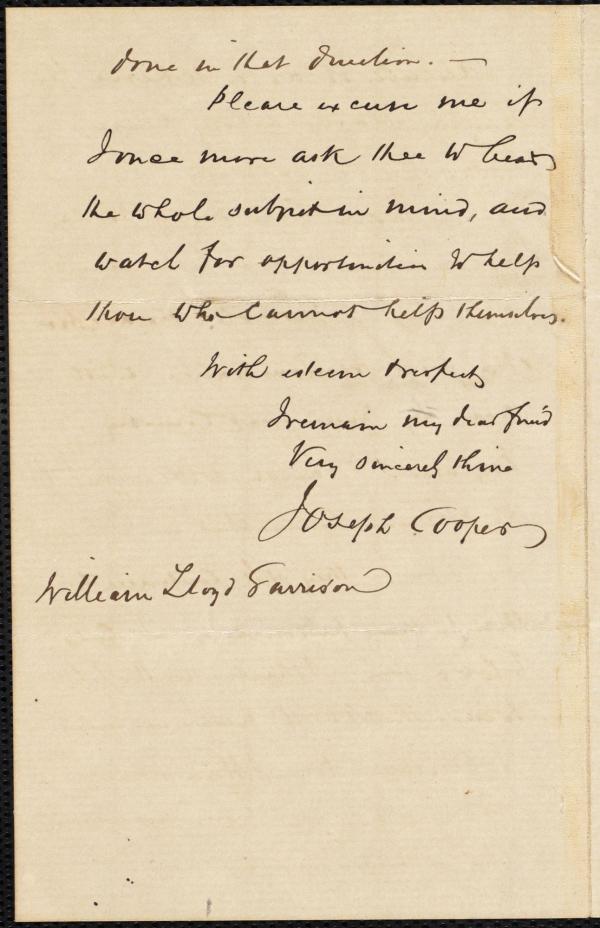 done in that direction. —
Please excuse me if
I once more ask thee to bear
the whole subject in mind, and
watch for opportunities to help
those who cannot help themselves.
With esteem & respect
I remain my dear friend
Very sincerely thine
Joseph Cooper
William Lloyd Garrison